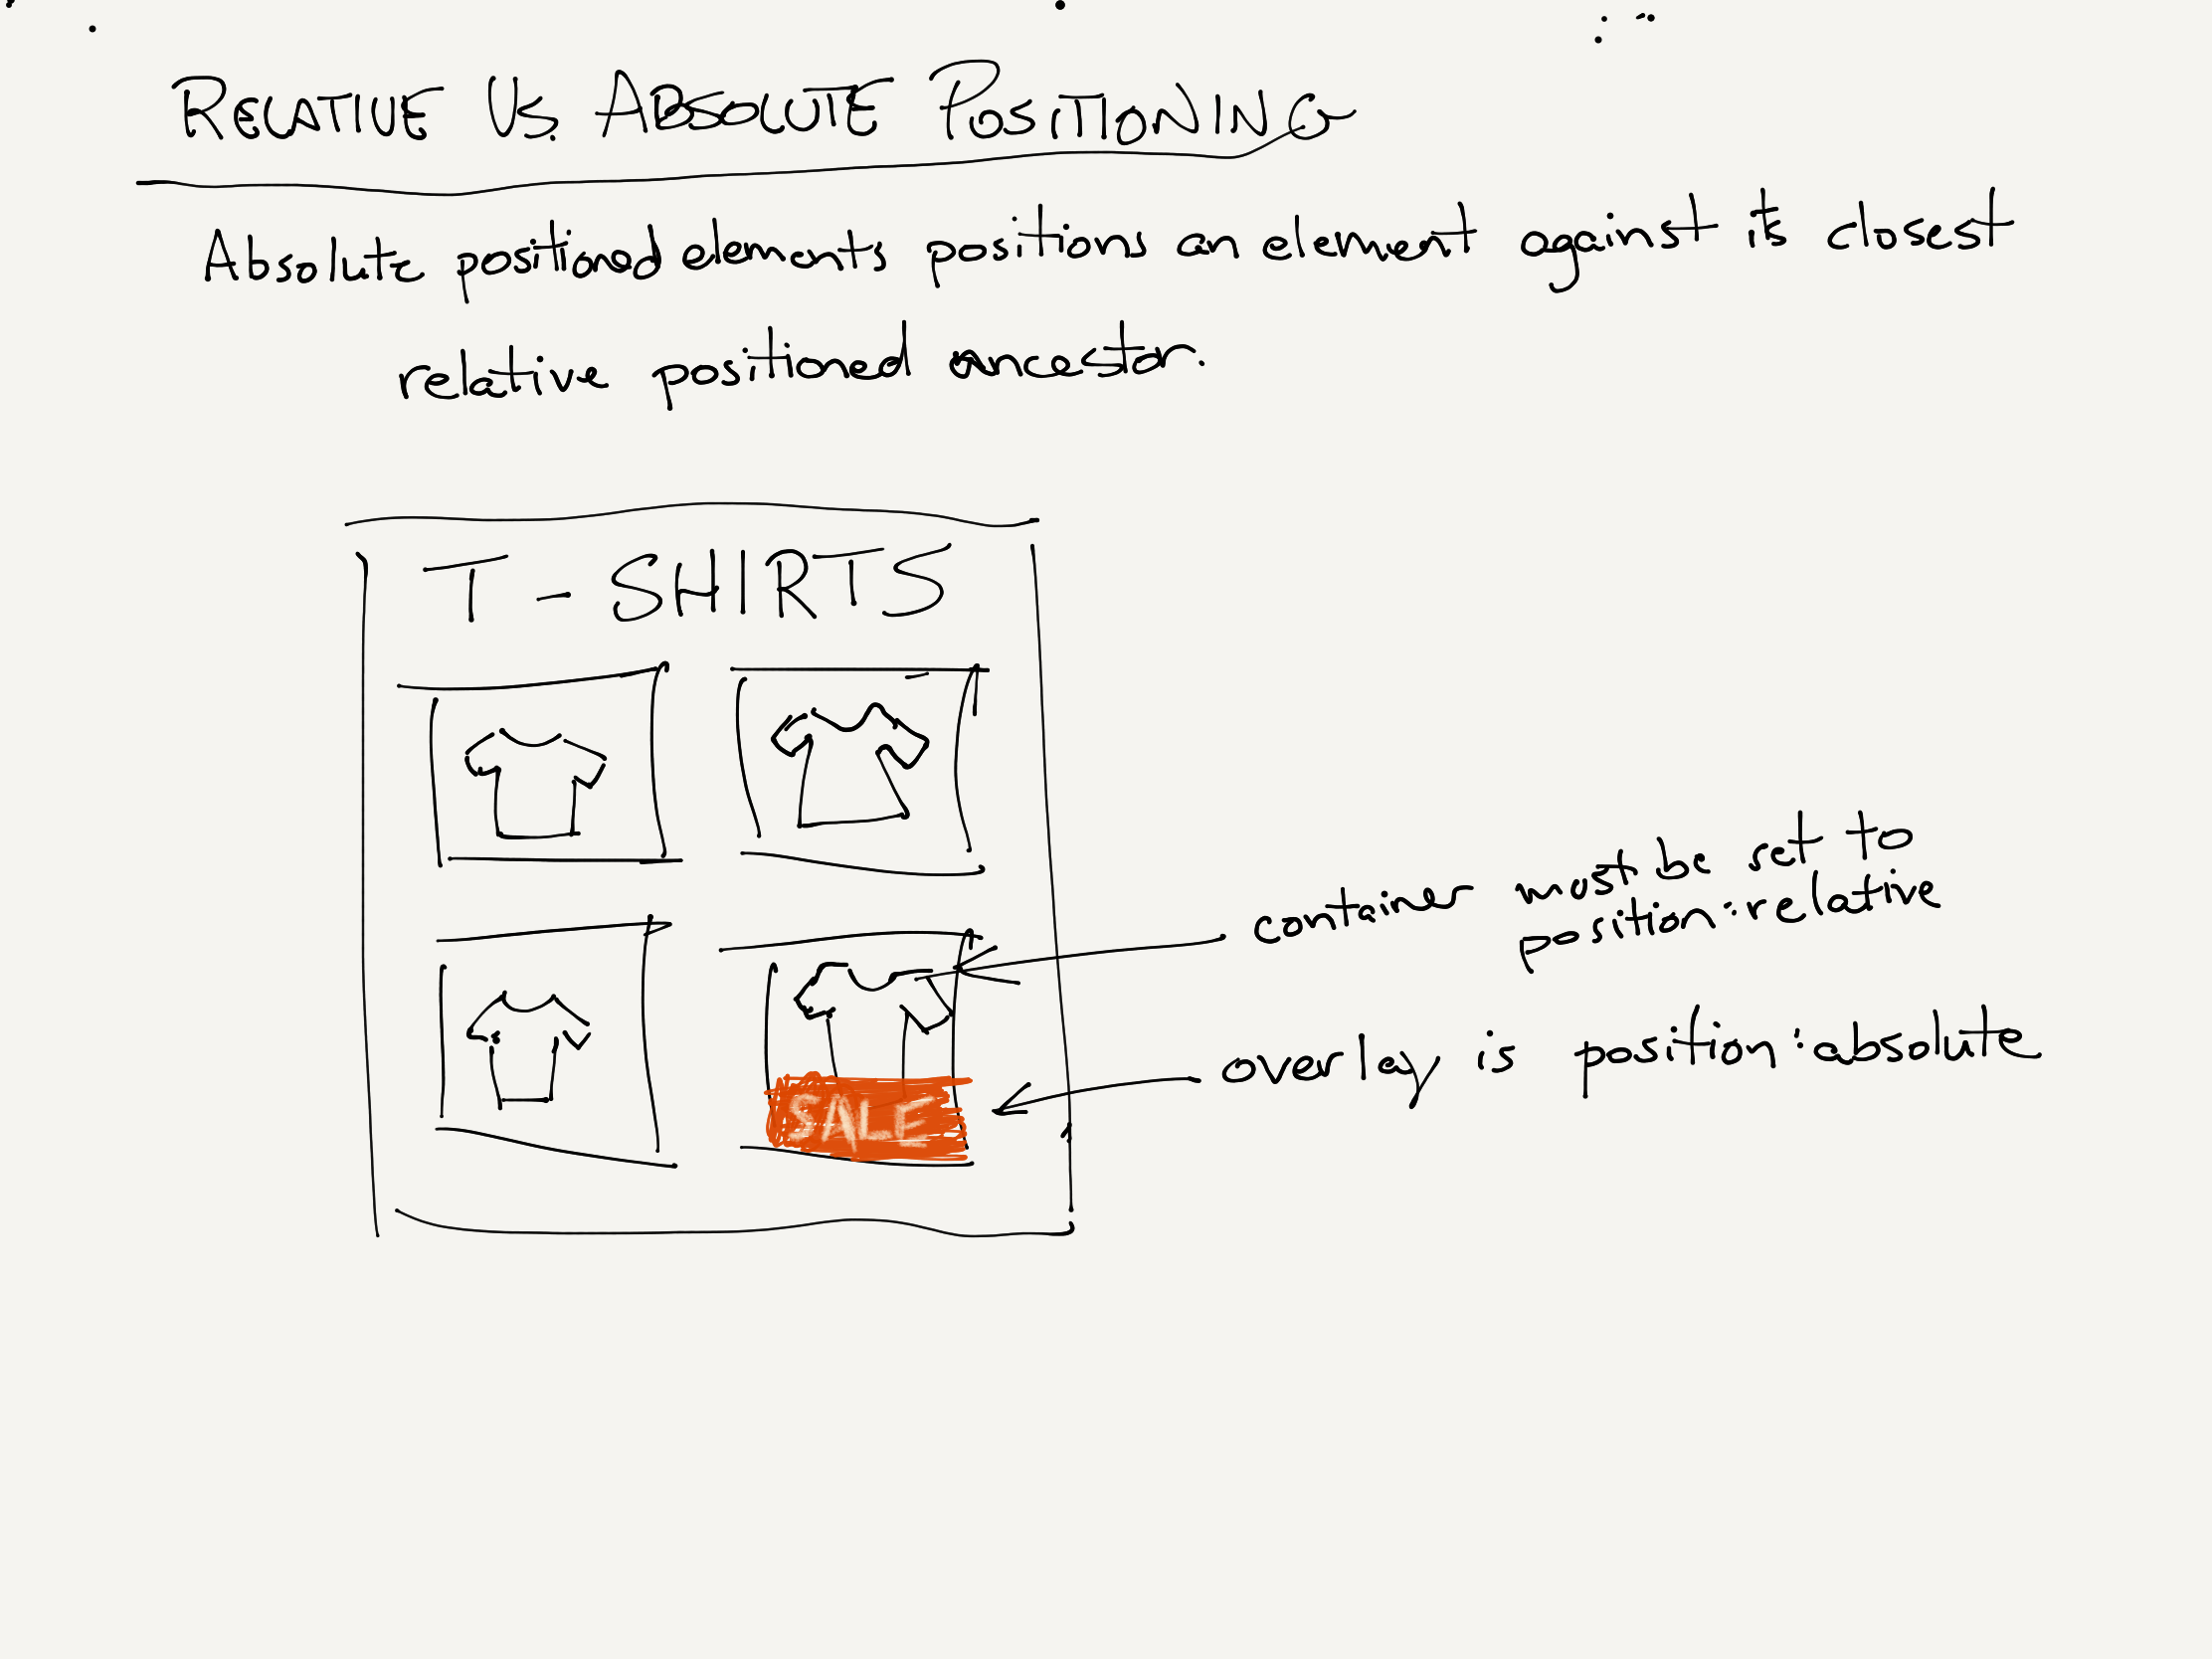 RELATIVE VS. ABSOLUTE POSITIONING
Absolute positioned elements positions an element against it's closest
relative positioned ancestor.
T - SHIRTS
container must be set to
position:relative
overlay is position:absolute
SALE